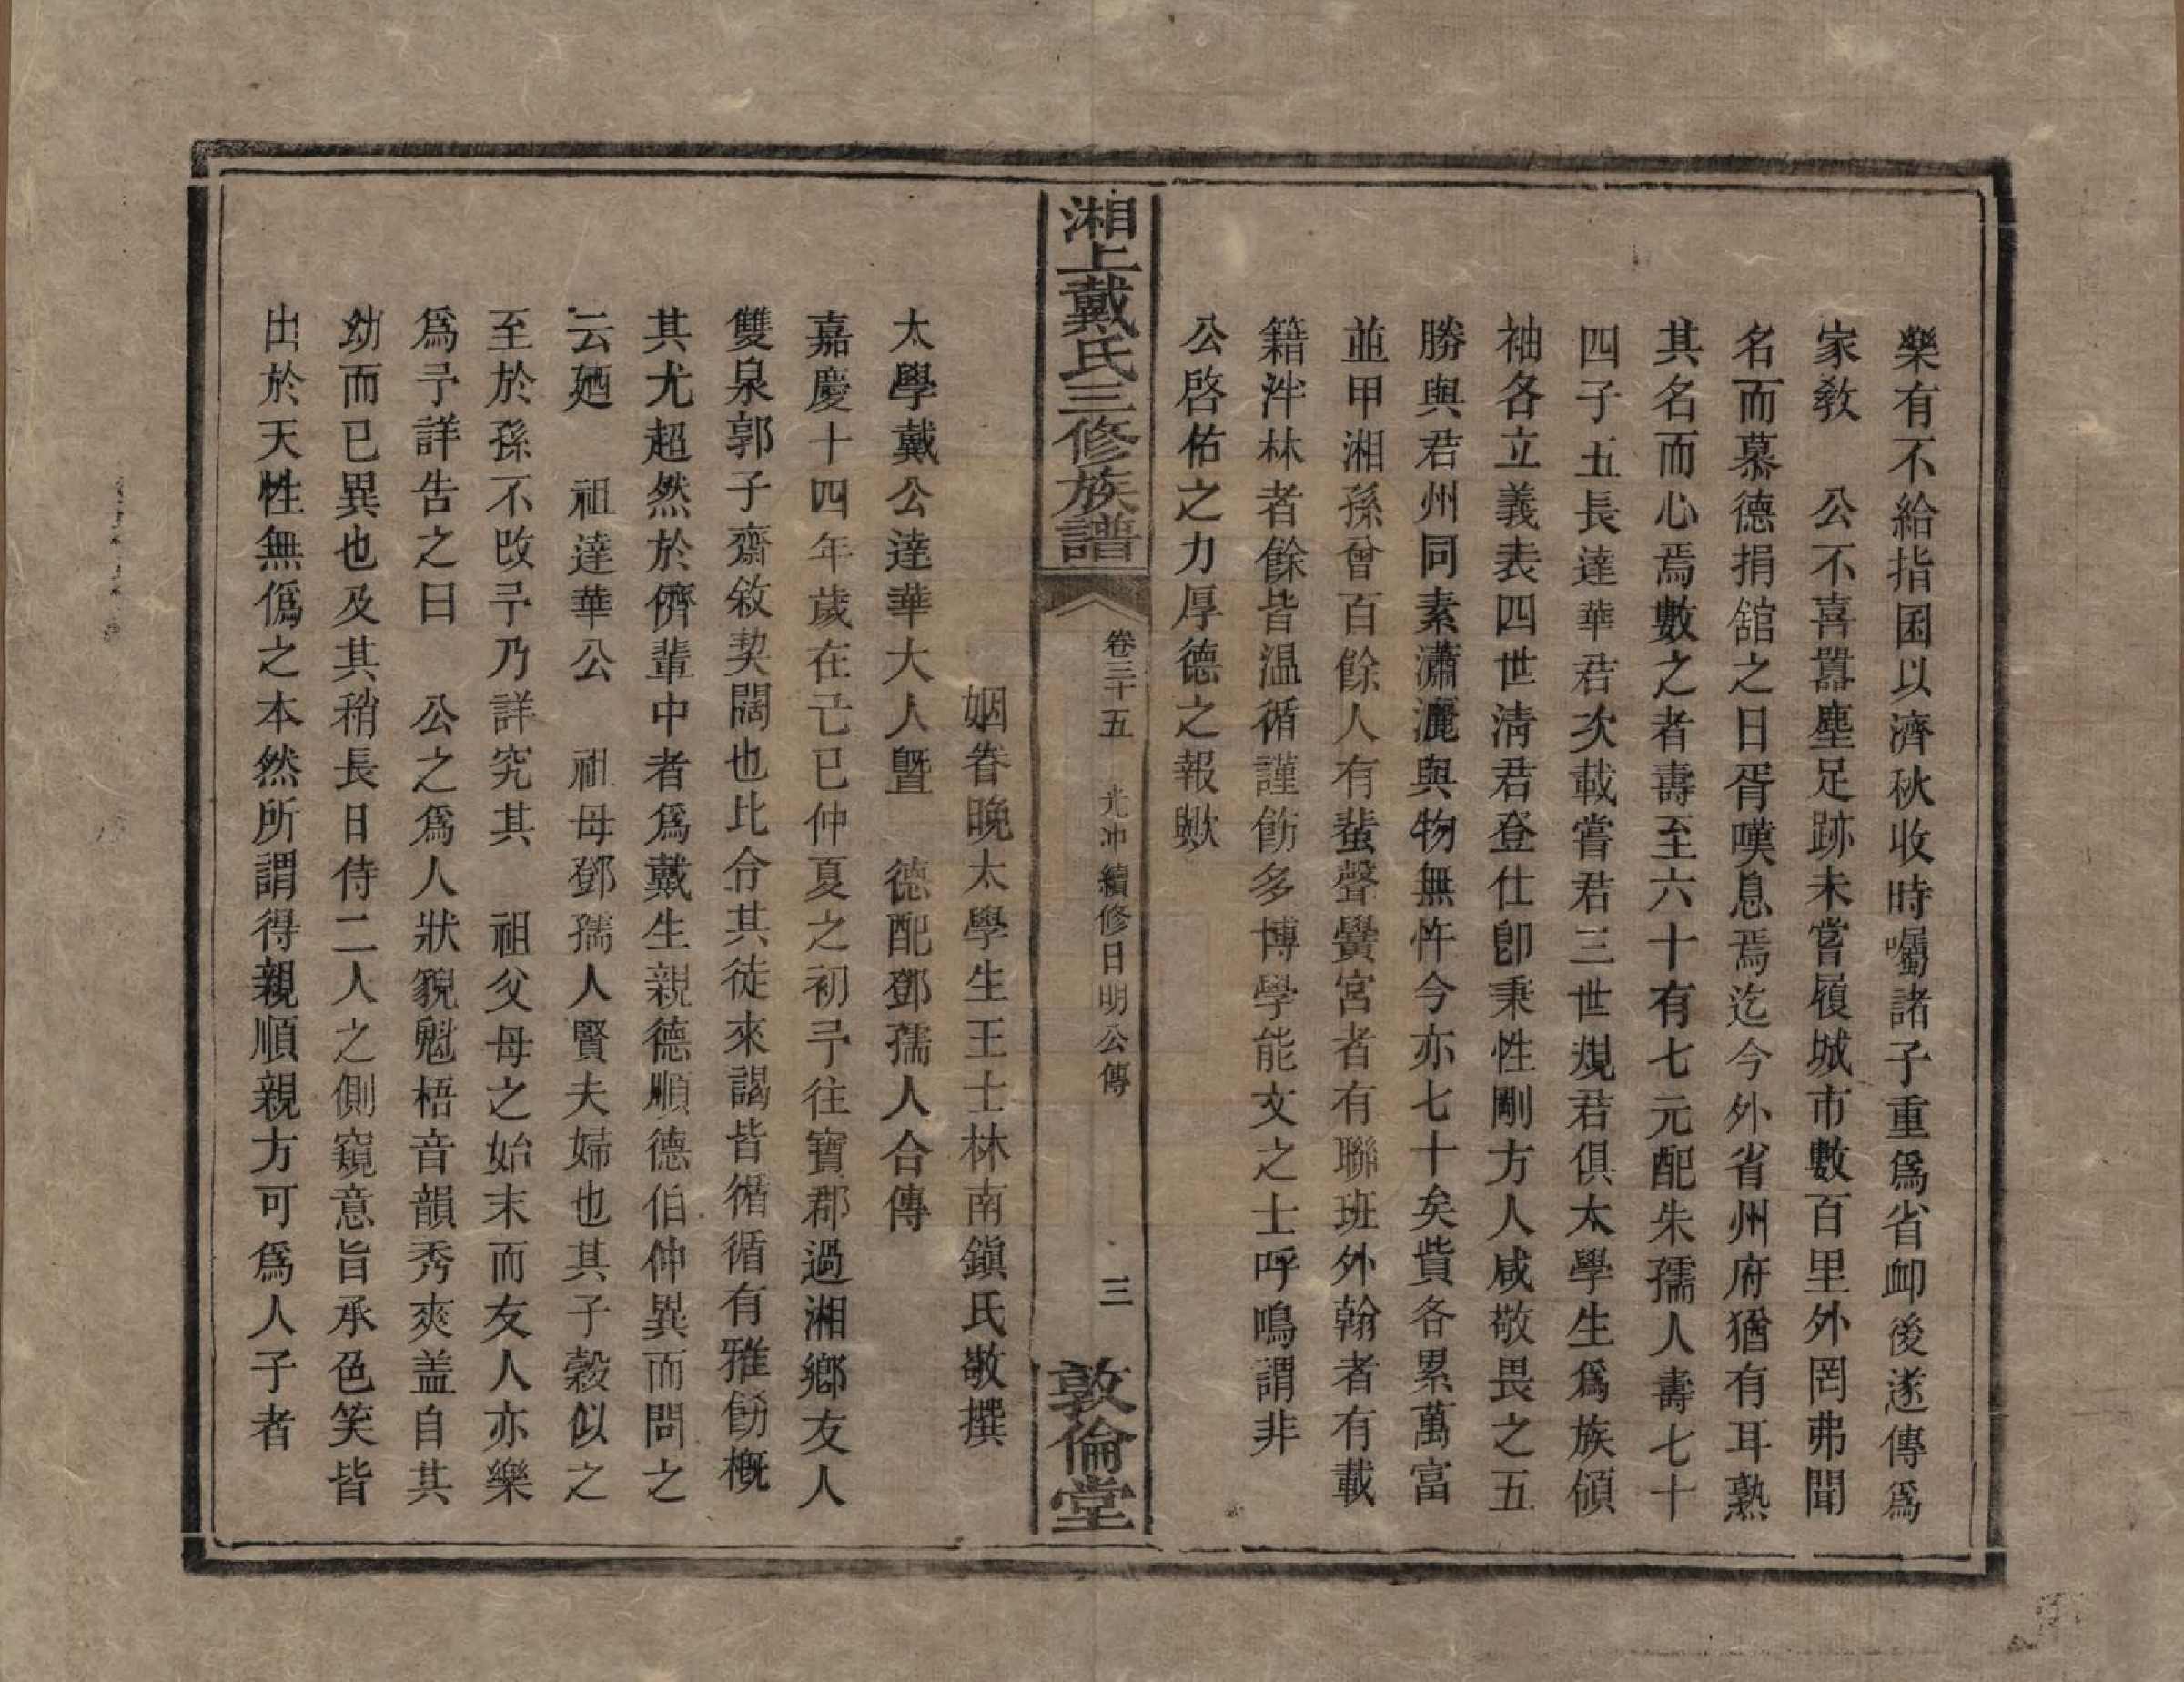 樂有不給指囷以濟秋收時囑諸子重爲省卹後遂傳爲
家教　公不喜囂塵足跡未嘗履城市數百里外罔弗聞
名而慕德捐舘之日胥嘆息焉迄今外省州府猶有耳熟
其名而心焉數之者壽至六十有七元配朱孺人壽七十
四子五長達華君次載嘗君三世規君俱太學生爲族領
袖各立義表四世淸君登仕卽秉性剛方人咸敬畏之五
勝與君州同素瀟灑與物無忤今亦七十矣貲各累萬富
並甲湘孫曾百餘人有蜚聲黌宮者有聯班外翰者有載
籍泮林者餘皆温循謹飭多博學能文之士呼鳴謂非
公啓佑之力厚德之報歟
湘上戴氏三修族譜
卷三十五　光冲續修日明公傳
三
敦倫堂
姻眷晚太學生王士林南鎭氏敬撰
太學戴公達華大人曁　德配鄧孺人合傳
嘉慶十四年歲在己巳仲夏之初予往寶郡過湘鄉友人
雙泉郭子齋敘契闊也比令其徒來謁皆循循有雅飭概
其尤超然於儕輩中者爲戴生親德順德伯仲異而問之
云廼　祖達華公　祖母鄧孺人賢夫婦也其子穀似之
至於孫不改予乃詳究其　祖父母之始末而友人亦樂
爲予詳告之曰　公之爲人狀貌魁梧音韻秀爽盖自其
幼而已異也及其稍長日侍二人之側窺意旨承色笑皆
出於天性無僞之本然所謂得親順親方可爲人子者